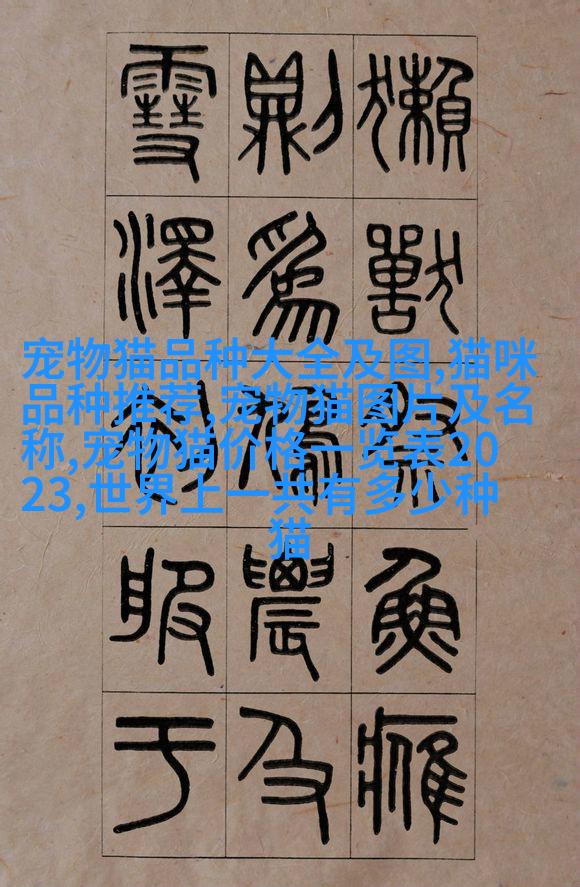 獺獸祭魚鷹
則爲鳩農及
雪澤初服于
宠物猫品种大全及图,猫咪
品种推荐,宠物猫图片及名
称,宠物猫价格一览表20
23,世界上一共有多少种
猫